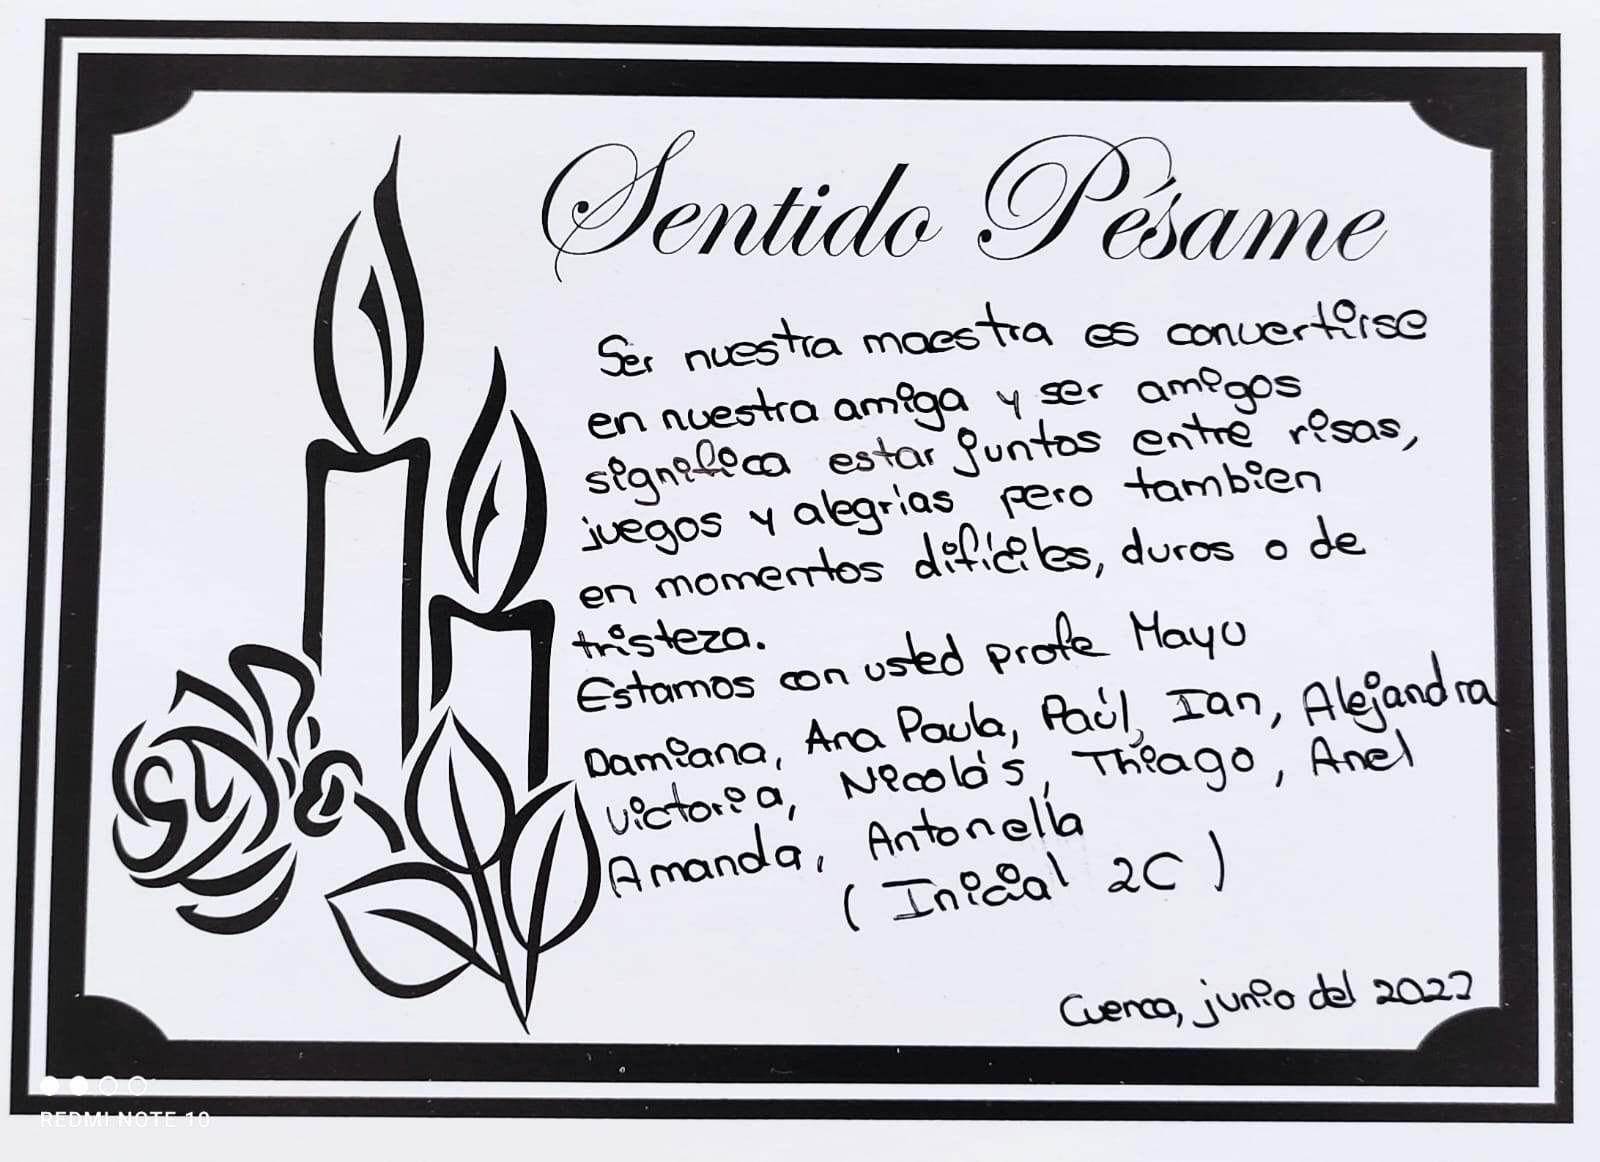 Sentido Pésame
Ser nuestra maestra es convertirse
en nuestra amiga y ser amigos
significa estar juntos entre risas,
juegos y alegrías pero tambien
en momentos difíciles, duros o de
tristeza.
Estamos con usted profe Mayu
Damiana, Ana Paula, Paúl, Ian, Alejandra
Victoria, Nicolás, Thiago, Anel
Amanda, Antonella
(Inicial 2C)
Cuenca, junio del 2022
REDMI NOTE 10